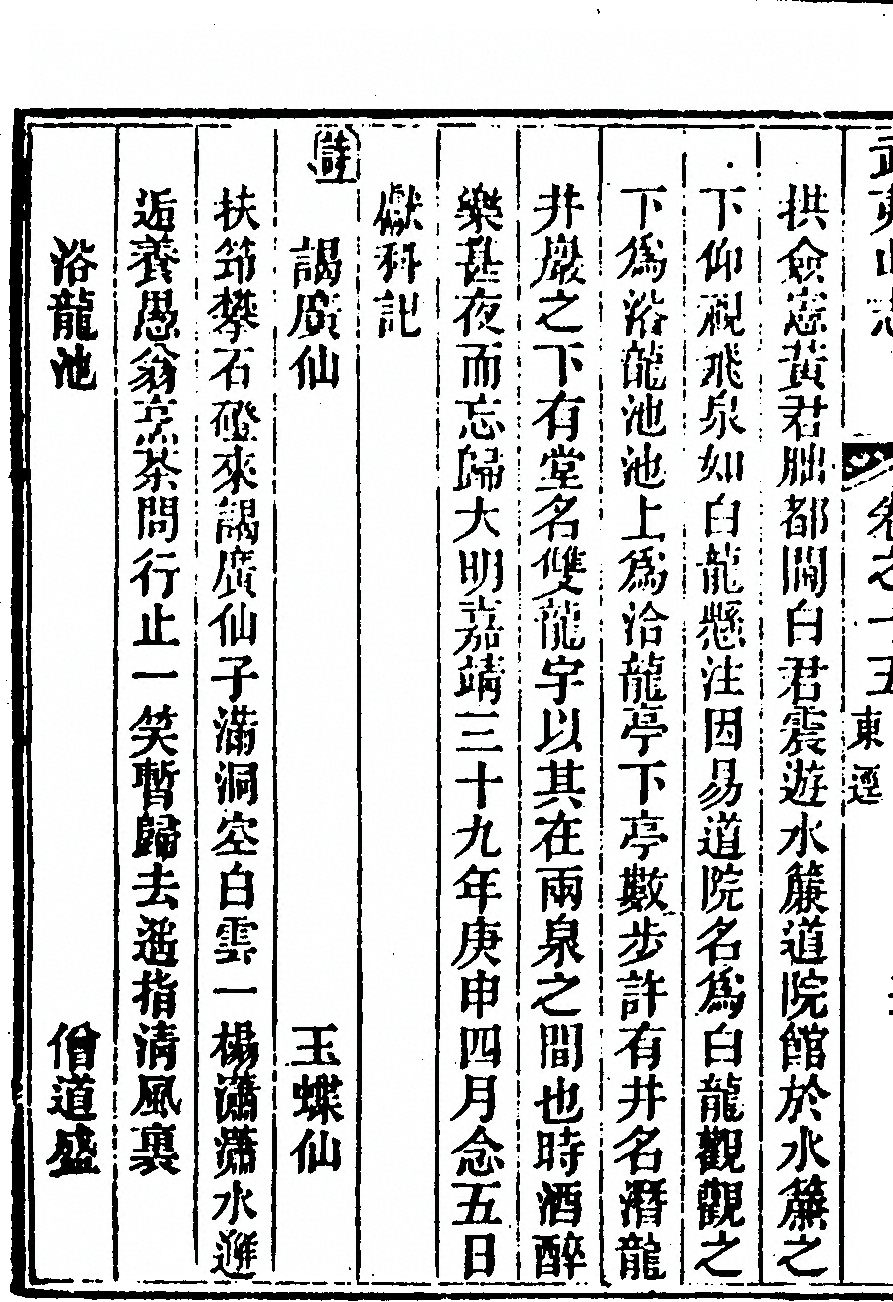 武夷山志 卷之十五 東逕
拱僉憲黃君朏都閫白君震遊水簾道院館於水簾之
下仰視飛泉如白龍懸注因易道院名爲白龍觀觀之
下爲浴龍池池上爲洽龍亭下亭數步許有井名潛龍
井巖之下有堂名雙龍宇以其在兩泉之間也時酒醉
樂甚夜而忘歸大明嘉靖三十九年庚申四月念五日
獻科記
詩 謁廣仙 玉蝶仙
扶筇攀石磴來謁廣仙子滿洞空白雲一榻瀟瀟水邂
逅養愚翁烹茶問行止一笑暫歸去遙指清風裏
浴龍池 僧道盛